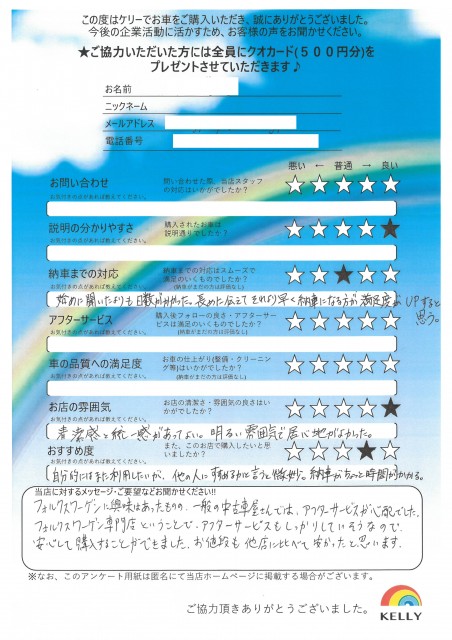 この度はケリーでお車をご購入いただき、誠にありがとうございました。
今後の企業活動に活かすため、お客様の声をお聞かせください。
★ご協力いただいた方には全員にクオカード(５００円分)を
プレゼントさせていただきます♪
お名前
ニックネーム
メールアドレス
電話番号
悪い ← 普通 → 良い
お問い合わせ 問い合わせた際、当店スタッフ
の対応はいかがでしたか?
お気付きの点があれば教えてください。
☆☆☆☆☆
説明の分かりやすさ 購入されたお車は
説明通りでしたか?
お気付きの点があれば教えてください。
☆☆☆☆★
納車までの対応 納車までの対応はスムーズで
満足のいくものでしたか?
お気付きの点があれば教えてください。 (納車がまだの方は評価なし)
☆☆★☆☆
始めに聞いたよりも日数がかかった。長めに伝えてそれより早く納車になる方が満足度はUPすると
思う。
アフターサービス 購入後フォローの良さ・アフターサー
ビスは満足のいくものでしたか?
お気付きの点があれば教えてください。 (納車がまだの方は評価なし)
☆☆☆☆☆
車の品質への満足度 お車の仕上がり(整備・クリーニン
グ等)はいかがでしたか?
お気付きの点があれば教えてください。 (納車がまだの方は評価なし)
☆☆☆☆☆
お店の雰囲気 お店の清潔さ・雰囲気の良さはい
かがでしたか?
お気付きの点があれば教えてください。
☆☆☆☆★
清潔感と統一感があってよい。明るい雰囲気で居心地がよかった。
おすすめ度 また、このお店で購入したいと思い
ましたか?
お気付きの点があれば教えてください。
☆☆☆★☆
自分的にはまた利用したいが、他の人にすすめるかと言うと微妙。納車がちょっと時間がかかる。
当店に対するメッセージ・ご要望などお聞かせください!!
フォルクスワーゲンに興味はあったものの、一般の中古車屋さんでは、アフターサービスが心配でした。
フォルクスワーゲン専門店ということで、アフターサービスもしっかりしていそうなので、
安心して購入することができました。お値段も他店に比べて安かったと思います。
※なお、このアンケート用紙は匿名にて当店ホームページに掲載する場合がございます。
ご協力頂きありがとうございました。
KELLY